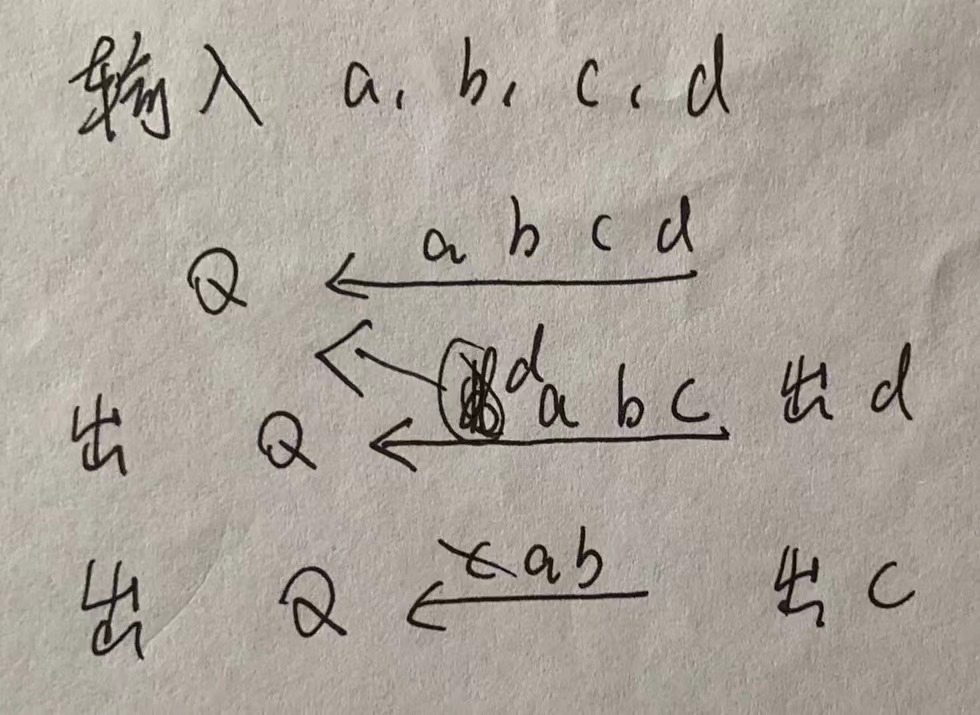 输入 a, b, c, d
Q ← a b c d
出 Q ← d a b c 出 d
出 Q ← c a b 出 c